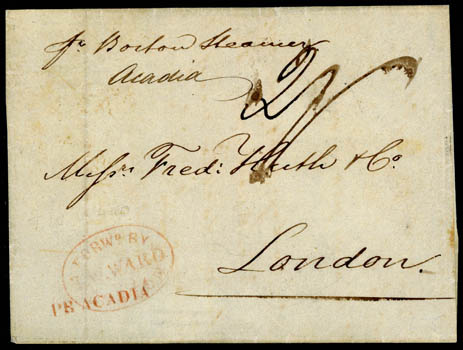 pr Boston Steamer
Acadia
2/
Messrs Fredk Huth & Co
London.
FORWD BY
WARD
PR ACADIA